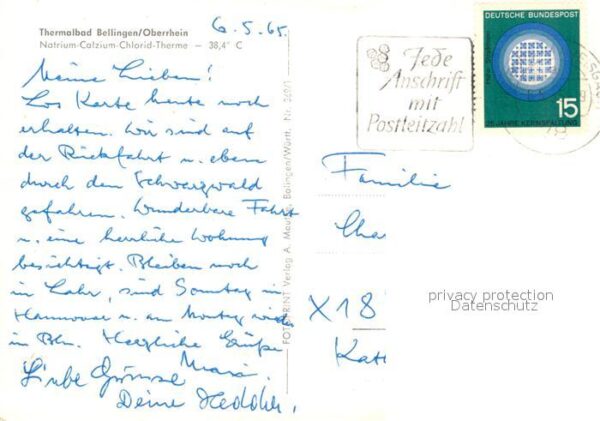 6.5.65
Thermalbad Bellingen/Oberrhein
Natrium-Calzium-Chlorid-Therme – 38,4° C
Meine Lieben!
Los Karte heute noch
erhalten. Wir sind auf
der Rückfahrt u. eben
durch den Schwarzwald
gefahren. Wunderbare Fahrt
u. eine herrliche Wohnung
besichtigt. Bleiben noch
in Lahr, sind Sonntag in
Hannover u. am Montag wieder
in Bln. Herzliche Grüße
Liebe Grüsse
Deine
FOTOPRINT Verlag A. Balingen/Württ. Nr. 369/1
Jede
Anschrift
mit
Postleitzahl
DEUTSCHE BUNDESPOST
15
25 JAHRE KERNSPALTUNG
Familie
Cha
X18
Kat
privacy protection
Datenschutz